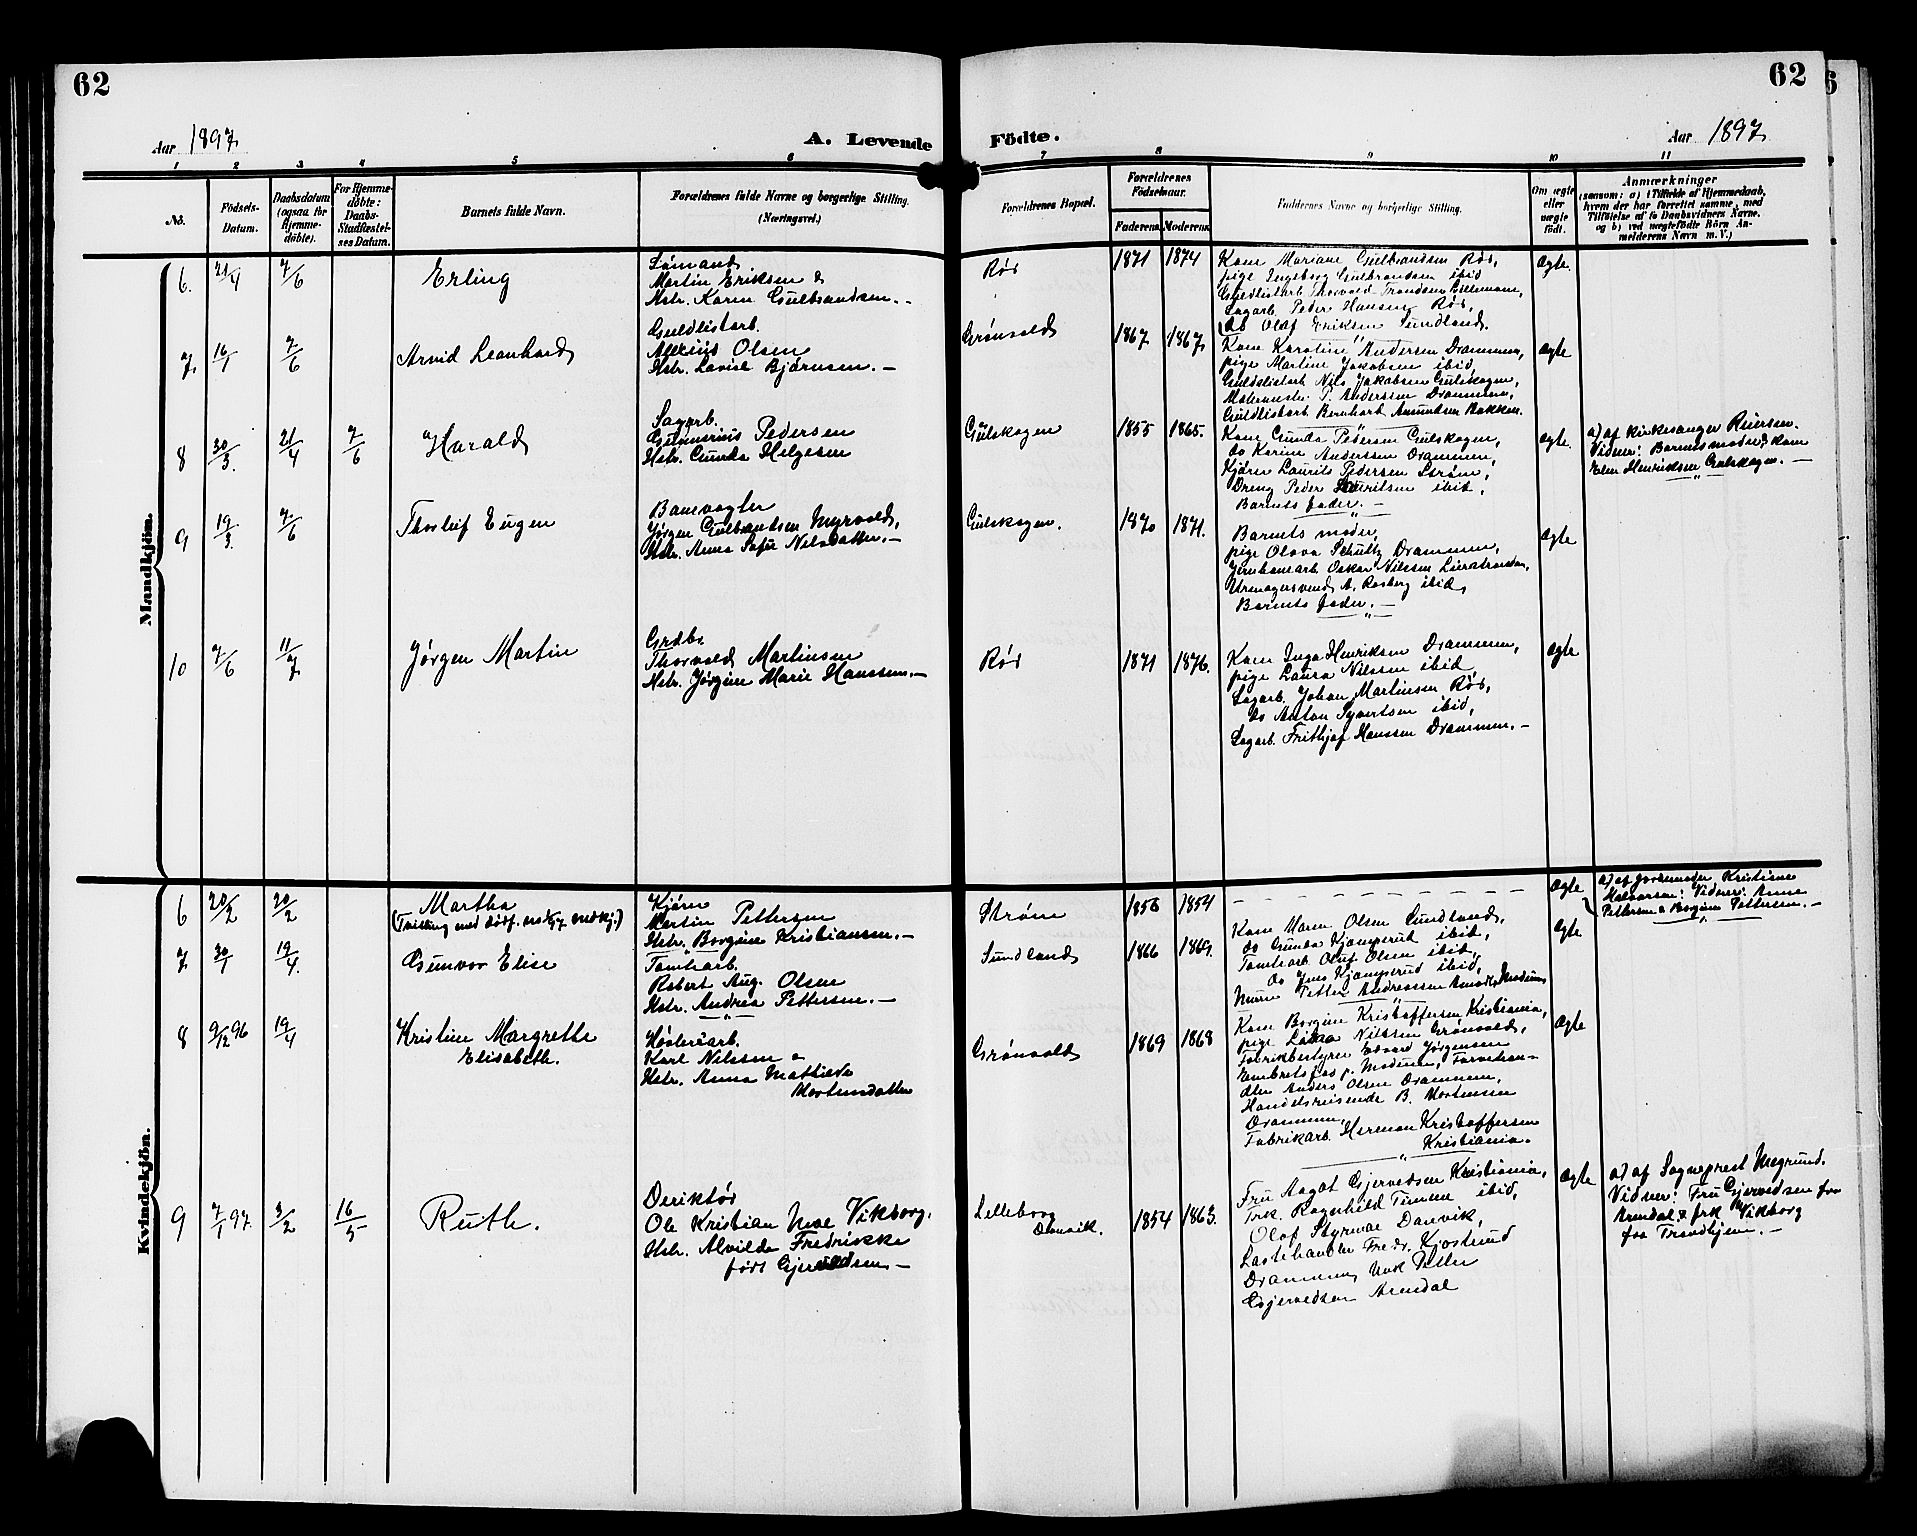 62
62
6
Aar 1897
A. Levende
Födte.
Aar 1897
1 2 3 4 5 6 7 8 9 10 11
No.
Födsels-
Datum.
Daabsdatum
(ogsaa for
Hjemme-
døbte).
For Hjemme-
døbte:
Daabs-
Stadfæstel-
ses Datum.
Barnets fulde Navn.
Forældrenes fulde Navne og borgerlige Stilling.
(Næringsvei.)
Forældrenes Bopæl.
Forældrenes
Födselsaar.
Faderens.
Moderens.
Faddernes Navne og borgerlige Stilling.
Om ægte
eller
uægte
født.
Anmærkninger
(saasom: a) i Tilfælde af Hjemmedaab,
hvem der har forrettet samme, med
Tilføielse af to Daabsvidners Navne,
og b) ved uægtefødte Börn An-
melderens Navn m. V.)
Mandkjön.
6. 21/4 7/6 Erling
Sømand
Martin Eriksen &
Hstr. Karen Gulbrandsen. -
Rød 1871 1874
Kone Mariane Gulbrandsen Rød,
pige Ingeborg Gulbrandsen ibid
Guldlistarb. Thorvald Trondsen
Sagarb. Peder Hansen Rød,
Olaf Eriksen Sundland.
Ægte.
7. 16/1 7/6 Arvid Leonhard
Guldlistarb.
Alexius Olsen
Hstr. Lovise Bjørnsen. -
Grønvold 1867 1867
Kone Karoline Andersen Drammen,
pige Martine Jakobsen ibid,
Guldlistarb Nils Jakobsen Gulskogen,
P. Andersen Drammen,
Guldlistarb Bernhart Amundsen Bakken.
Ægte
8 30/3. 21/4 7/6 Harald
Sagarb.
Pedersen
Hstr. Gunda Helgesen
Gulskogen 1855 1865.
Kone Gunda Pedersen Gulskogen,
do Karine Anderssen Drammen,
Kjører Laurits Pedersen Strøm,
Dreng Peder Lauritsen ibid,
Barnets fader. -
Ægte.
a) af kirkesanger Reiersen.
Vidner: Barnets moder & kone
Elen Henriksen Gulskogen. -
9 19/3. 7/6 Thorleif Eugen
Banevogter
Jørgen Gulbrandsen Myrvold,
Hstr. Anna Sofie Nilsdatter. -
Gulskogen. 1870 1871.
Barnets moder,
pige Olava Schultz Drammen,
Jernbanearb Oskar Nilssen Lierstranden,
Urmagersvend A. Rosberg ibid,
Barnets fader. -
Ægte
10 7/6 11/7 Jørgen Martin
Grdbr.
Thorvald Martinsen
Hstr. Jørgine Marie Hanssen. -
Rød 1871 1876.
Kone Inga Henriksen Drammen,
pige Laura Nilssen ibid
Sagarb. Johan Martinsen Rød,
do Anton Syvertsen ibid,
Sagarb. Frithjof Hanssen Drammen. -
Ægte
Kvindekjön.
6 20/2 20/2 Martha
Kjører
Martin Pettersen
Hstr. Borgine Kristiansen. -
Strøm 1856 1854
Ægte
a) af jordemoder Kristiane
Halvorsen: Vidner: Anne
Pettersen & Borgine Pettersen. -
7 30/1 19/4. Gunvor Elise
Tomtearb.
Robert Aug. Olsen
Hstr. Andrea Pettersen. -
Sundland 1866 1869.
Kone Maren Olsen Sundland,
do Gunda Kjamperud ibid,
Tomtearb Oluf Olsen ibid,
do Jens Kjamperud ibid,
Murer Petter Andreassen Modum
Ægte
8 9/12 96 19/4 Kristine Margrethe
Elisabeth.
Høvleriarb.
Karl Nilssen &
Hstr. Anna Mathieve
Mortensdatter
Grønvold 1869 1868
Kone Borgine Kristoffersen Kristiania,
pige Nilssen Grønvold,
Fabrikbestyrer Edvard Jørgensen
Embretsfos p. Modum, Farvehan-
dler Anders Olsen Drammen,
Handelsreisende B. Mortensen
Drammen,
Fabrikarb. Herman Kristoffersen
Kristiania.
Ægte
9 7/1 97. 3/2 16/5 Ruth.
Deriktør
Ole Kristian Moe Vikborg.
Hstr. Alvilde Fredrikke
født Gjervedsen -
Lilleborg
Danvik. 1854 1863.
Fru Aagot Gjervedsen Kristiania,
Frk. Ragnhild Timme ibid,
Olaf Styrmoe Danvik,
Lastehandler Fredr. Kjostrud
Drammen, Petter
Gjervedsen Arendal
Ægte
a) af Sogneprest Megrund.
Vidner: Fru Gjervedsen fra
Arendal & frk Vikborg
fra Trondhjem. -